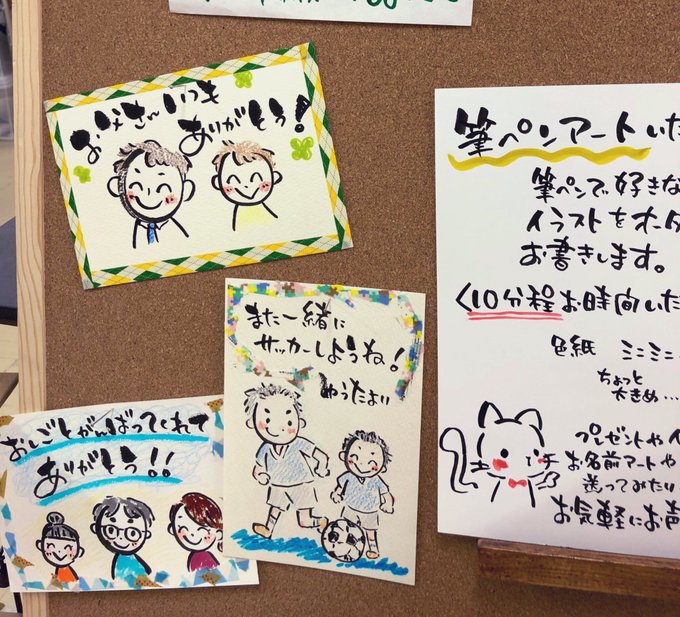 お父さんいつも
ありがとう!
また一緒に
サッカーしようね!
ゆうたより
おしごとがんばってくれて
ありがとう!!
筆ペンアートいた
筆ペンで好きな
イラストをオーダ
お書きします。
く10分程お時間いた
色紙 ミニミニ
ちょっと
大きめ…
プレゼントや
お名前アートや
送ってみたい
お気軽にお声